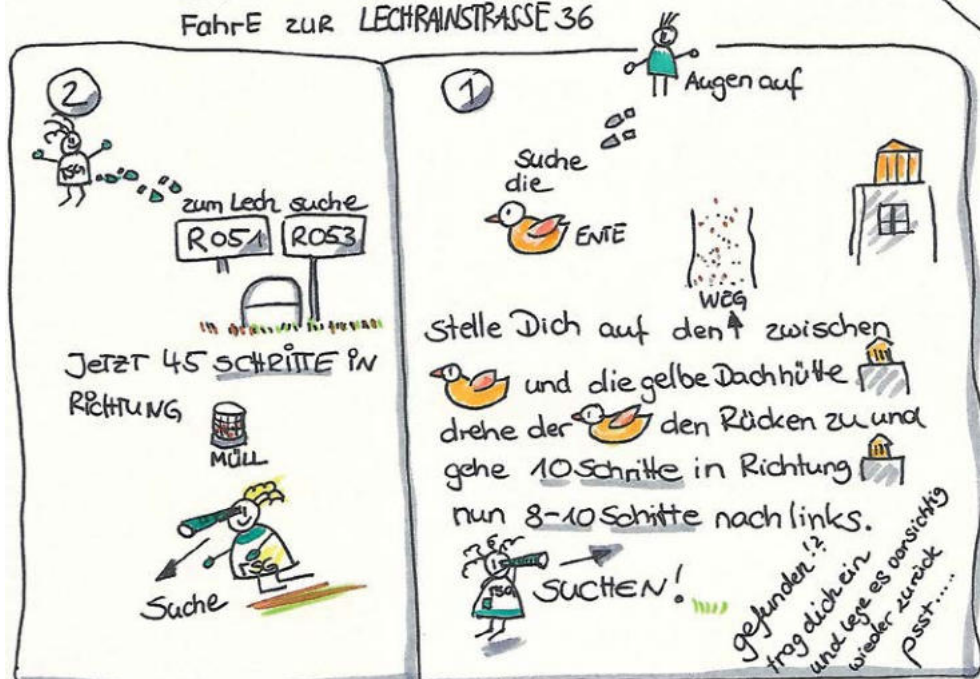 FahrE zuR LECHRAINSTRASSE 36
2
TSG
zum Lech suche
R051 R053
JETZT 45 SCHRITTE IN
RICHTUNG
MÜLL
TSG
Suche
1
Augen auf
Suche
die
ENTE
WEG
Stelle Dich auf den zwischen
und die gelbe Dachhütte
drehe der den Rücken zu und
gehe 10 Schritte in Richtung
nun 8-10 Schitte nach links.
TSG
SUCHEN!
gefunden!?
trag dich ein
und lege es vorsichtig
wieder zurück
psst....